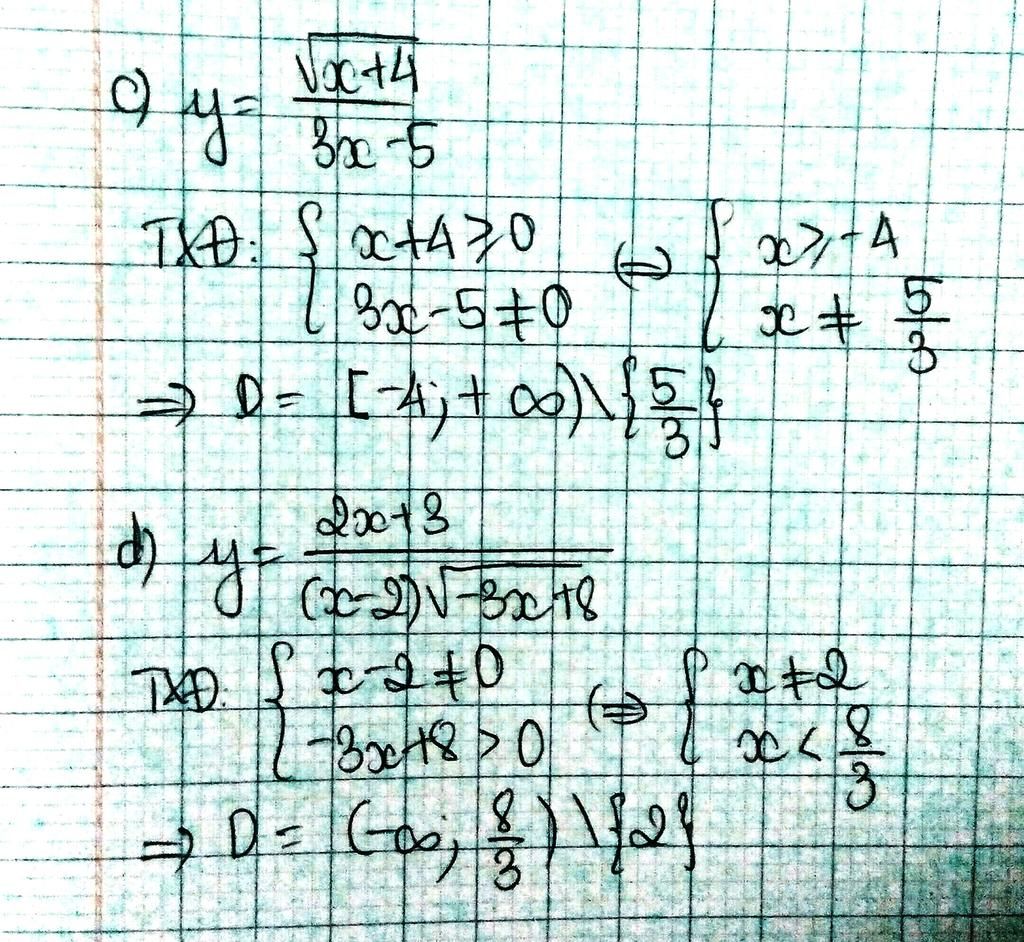 c) y = √(x+4) / (3x-5)
TXĐ: { x+4 ≥ 0 ; 3x-5 ≠ 0 (⇒) { x ≥ -4 ; x ≠ 5/3
⇒ D = [-4; +∞) \ {5/3}
d) y = (2x+3) / ((x-2)√(-3x+8))
TXĐ: { x-2 ≠ 0 ; -3x+8 > 0 (⇒) { x ≠ 2 ; x < 8/3
⇒ D = (-∞; 8/3) \ {2}